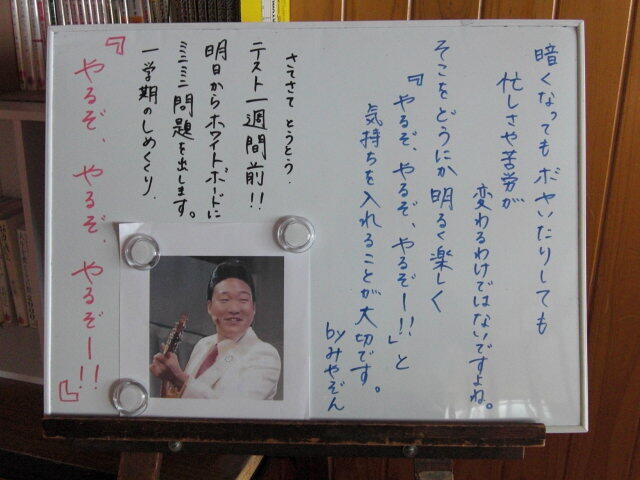 暗くなってもボヤいたりしても
忙しさや苦労が
変わるわけではないですよね。
そこをどうにか明るく楽しく
『やるぞ、やるぞ、やるぞー!!』と
気持ちを入れることが大切です。
byみやぞん
さてさて とうとう、
テスト一週間前!!
明日からホワイトボードに
ミニミニ問題を出します。
一学期のしめくくり、
『やるぞ、やるぞ、やるぞー!!』